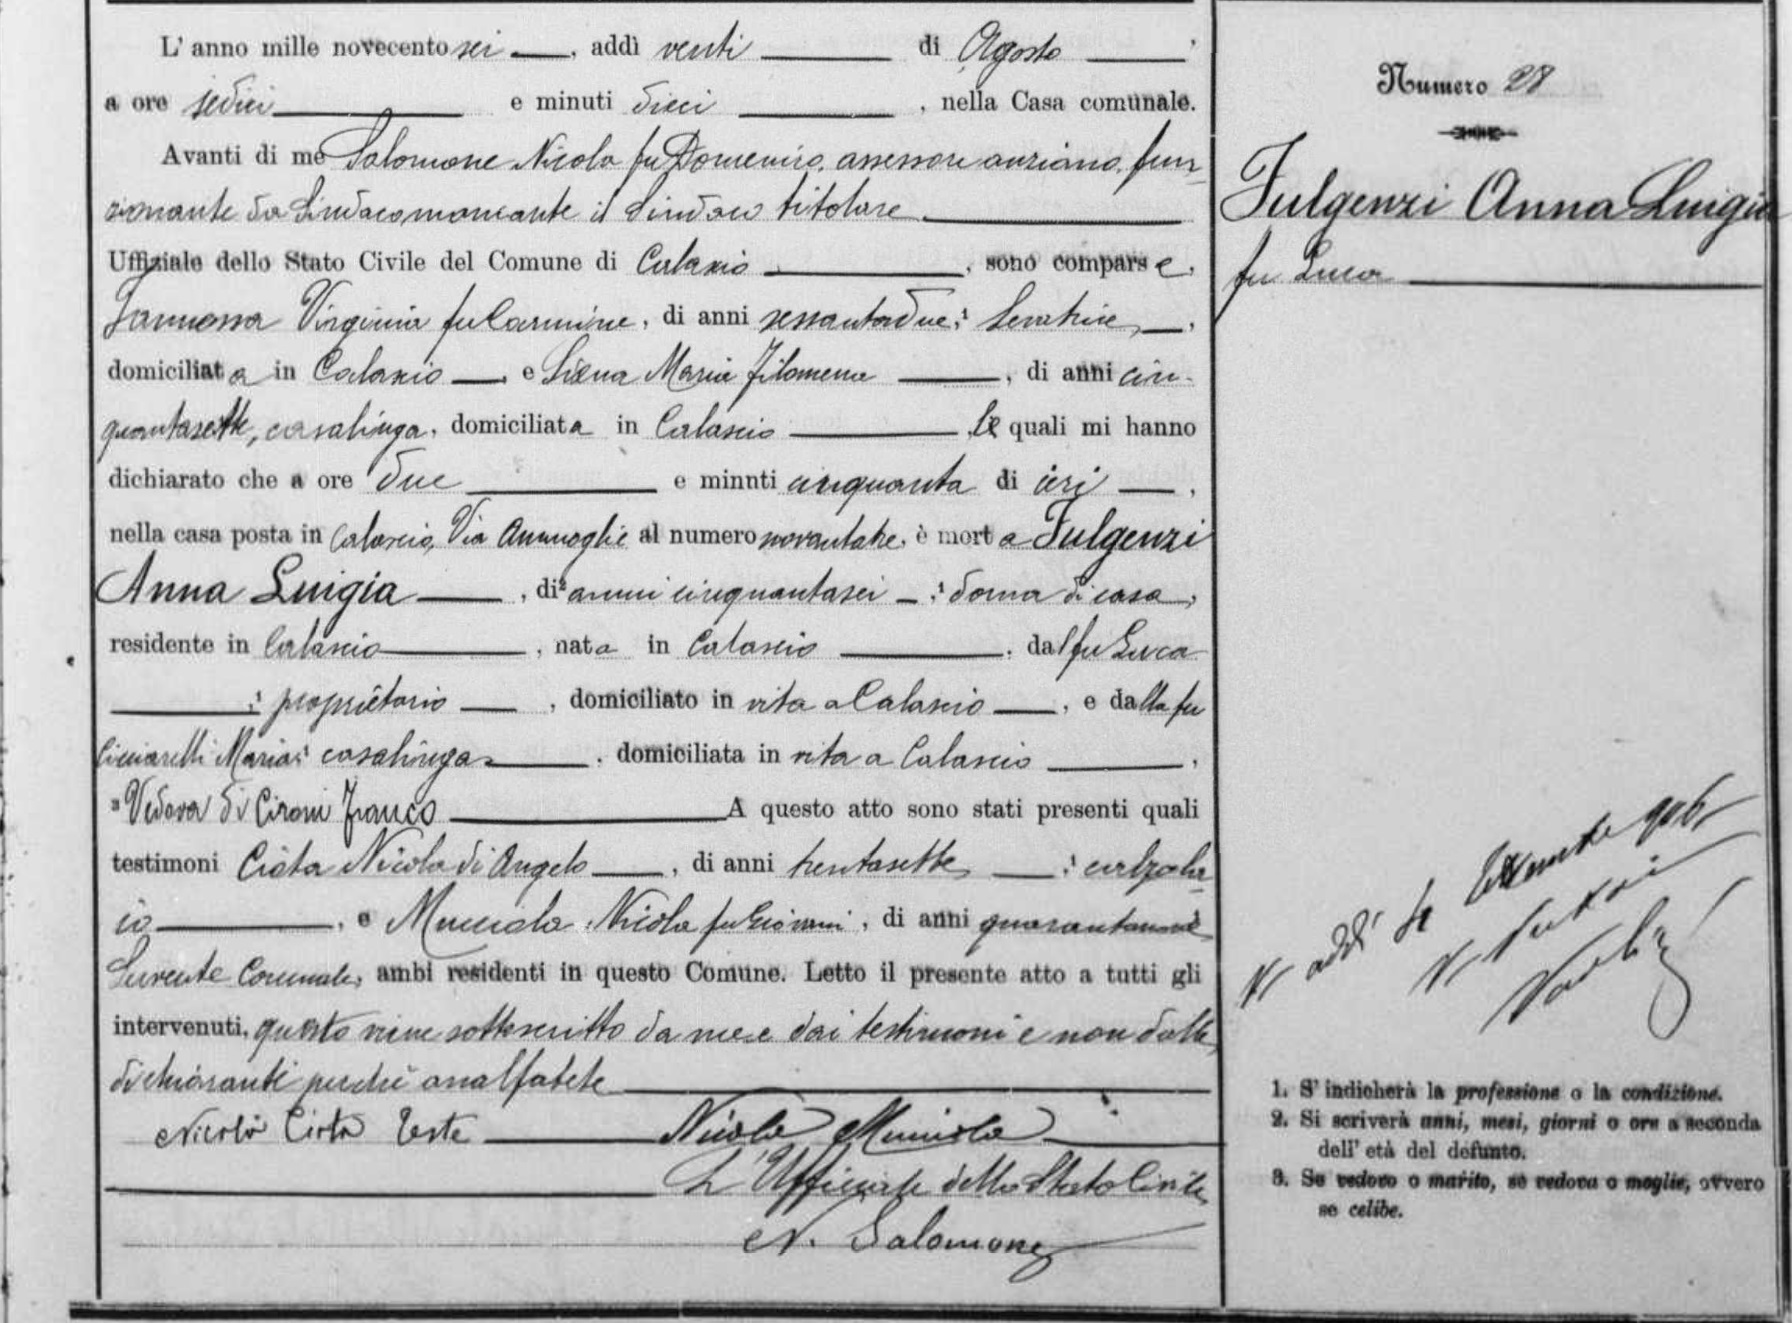 L' anno mille novecento sei, addì venti di Agosto,
a ore sedici e minuti dieci, nella Casa comunale.
Avanti di me Salomone Nicola fu Domenico, assessore anziano, fun-
zionante da Sindaco mancante il Sindaco titolare
Uffiziale dello Stato Civile del Comune di Calascio, sono comparse,
Virginia fu Carmine, di anni sessantadue,
domiciliata in Calascio e Maria Filomena, di anni cin-
quantasette, casalinga, domiciliata in Calascio, le quali mi hanno
dichiarato che a ore due e minuti cinquanta di ieri,
nella casa posta in Calascio, Via al numero novantatre, è morta Fulgenzi
Anna Luigia, di ² anni cinquantasei, ¹ donna di casa,
residente in Calascio, nata in Calascio, dal fu Luca
, ¹ proprietario, domiciliato in vita a Calascio, e dalla fu
Maria, ¹ casalinga, domiciliata in vita a Calascio,
³ Vedova di Franco A questo atto sono stati presenti quali
testimoni Ciota Nicola di Angelo, di anni trentasette, ¹ calzola-
io, e Nicola fu Giovanni, di anni quarantanove
Servente Comunale, ambi residenti in questo Comune. Letto il presente atto a tutti gli
intervenuti, questo viene sottoscritto da me e dai testimoni e non dalle
dichiaranti perchè analfabete
Nicola Ciota Teste Nicola
L'Ufficiale dello Stato Civile
N. Salomone
Numero 28
Fulgenzi Anna Luigia
fu Luca
1. S' indicherà la professione o la condizione.
2. Si scriverà anni, mesi, giorni o ore a seconda
dell' età del defunto.
3. Se vedovo o marito, se vedova o moglie, ovvero
se celibe.